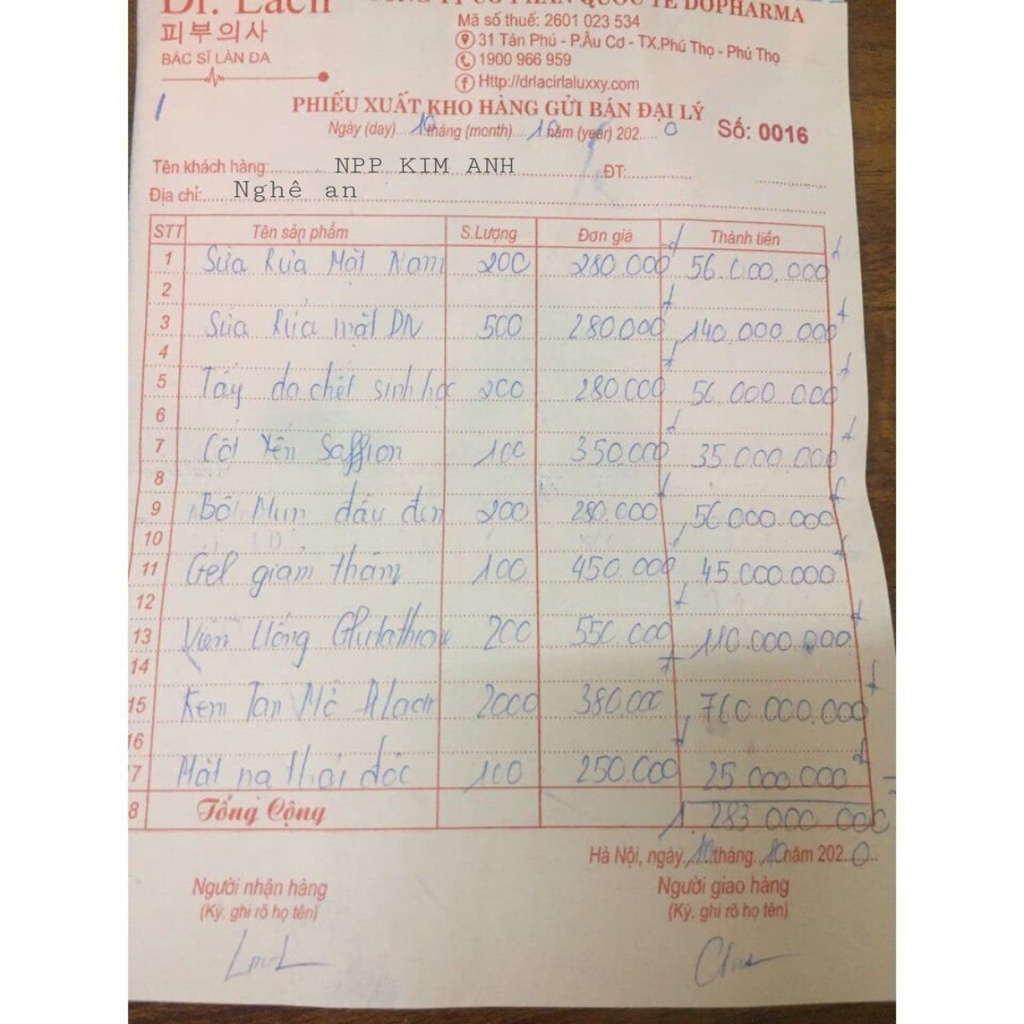 Dr. Lacir
CÔNG TY CỔ PHẦN QUỐC TẾ DOPHARMA
피부의사
BÁC SĨ LÀN DA
Mã số thuế: 2601 023 534
31 Tân Phú - P.Âu Cơ - TX.Phú Thọ - Phú Thọ
1900 966 959
Http://drlacirlaluxxy.com
PHIẾU XUẤT KHO HÀNG GỬI BÁN ĐẠI LÝ
Ngày (day)....10tháng (month)....10năm (year) 202....0 Số: 0016
Tên khách hàng:......... NPP KIM ANH ĐT:............
Địa chỉ:..... Nghê an
STT Tên sản phẩm S.Lượng Đơn giá Thành tiền
1 Sữa Rửa Mặt Nam 200 280.000 56.000.000
2
3 Sữa Rửa mặt DN 500 280.000 140.000.000
4
5 Tẩy da chết sinh học 200 280.000 56.000.000
6
7 Cốt Yến Saffron 100 350.000 35.000.000
8
9 Bôi Mụn đầu đen 200 280.000 56.000.000
10
11 Gel giảm thâm 100 450.000 45.000.000
12
13 Viên Uống Glutathione 200 550.000 110.000.000
14
15 Kem Tan Mỡ 2000 380.000 760.000.000
16
17 Mặt nạ thải độc 100 250.000 25.000.000
18 Tổng Cộng 1.283.000.000
Hà Nội, ngày.10tháng.10năm 202..0
Người nhận hàng Người giao hàng
(Ký, ghi rõ họ tên) (Ký, ghi rõ họ tên)